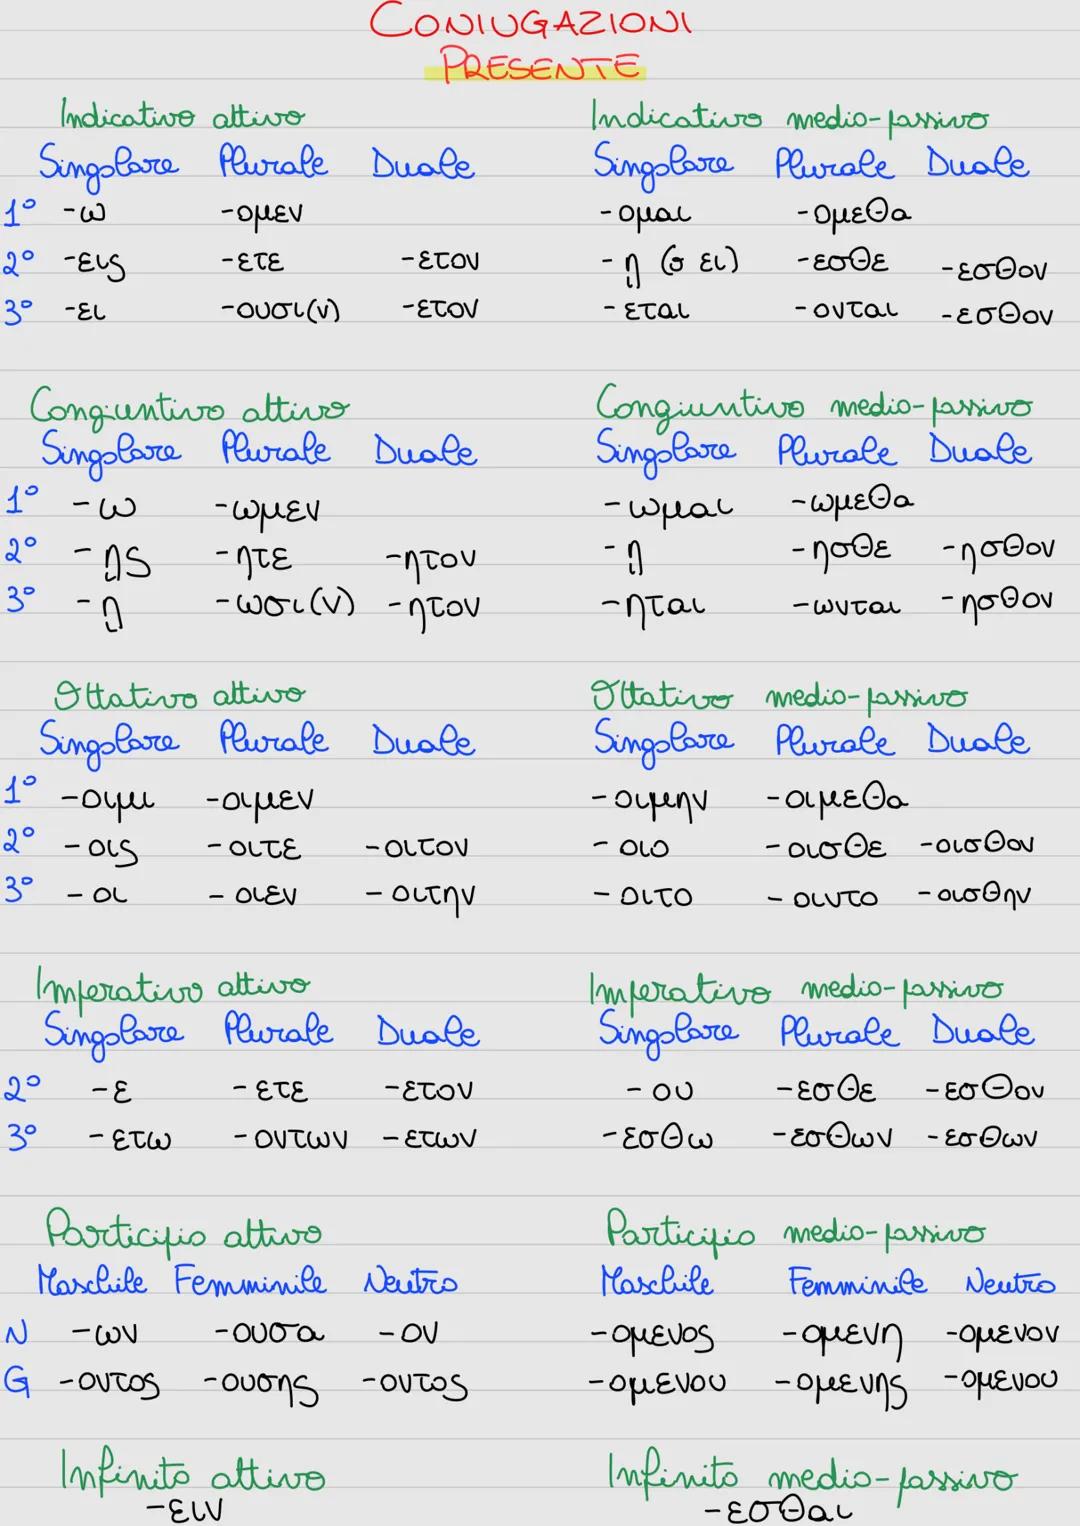 CONIUGAZIONI
PRESENTE
Indicativo attivo
Singolare Plurale Duale
1° -ω -ομεν
2° -εις -ετε -ετον
3° -ει -ουσι(ν) -ετον
Indicativo medio-passivo
Singolare Plurale Duale
-ομαι -ομεθα
-ῃ (o ει) -εσθε -εσθον
-εται -ονται -εσθον
Congiuntivo attivo
Singolare Plurale Duale
1° -ω -ωμεν
2° -ῃς -ητε -ητον
3° -ῃ -ωσι(ν) -ητον
Congiuntivo medio-passivo
Singolare Plurale Duale
-ωμαι -ωμεθα
-ῃ -ησθε -ησθον
-ηται -ωνται -ησθον
Ottativo attivo
Singolare Plurale Duale
1° -οιμι -οιμεν
2° -οις -οιτε -οιτον
3° -οι -οιεν -οιτην
Ottativo medio-passivo
Singolare Plurale Duale
-οιμην -οιμεθα
-οιο -οισθε -οισθον
-οιτο -οιντο -οισθην
Imperativo attivo
Singolare Plurale Duale
2° -ε -ετε -ετον
3° -ετω -οντων -ετων
Imperativo medio-passivo
Singolare Plurale Duale
-ου -εσθε -εσθον
-εσθω -εσθων -εσθων
Participio attivo
Maschile Femminile Neutro
N -ων -ουσα -ον
G -οντος -ουσης -οντος
Participio medio-passivo
Maschile Femminile Neutro
-ομενος -ομενη -ομενον
-ομενου -ομενης -ομενου
Infinito attivo
-ειν
Infinito medio-passivo
-εσθαι